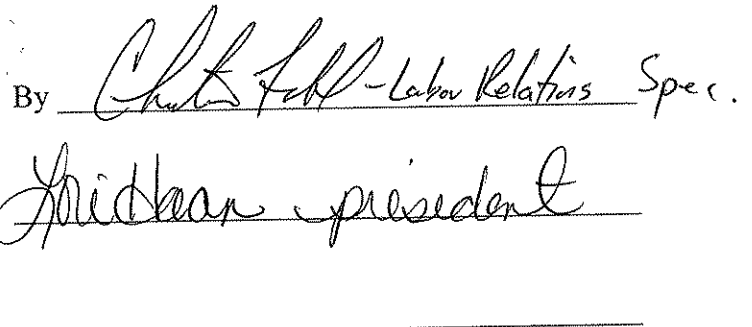 By - Labor Relations Spec.
Lori Haan president